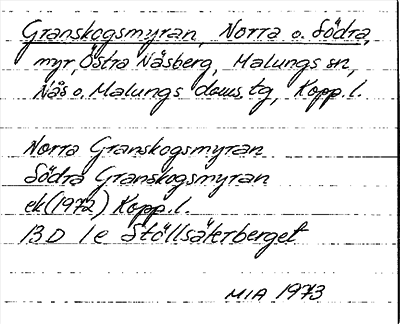 Granskogsmyran, Norra o. Södra,
myr, Östra Näsberg, Malungs sn,
Nås o. Malungs doms. tg, Kopp. l.
Norra Granskogsmyran
Södra Granskogsmyran
ek (1972) Kopp. l.
13D 1e Ställsäterberget
MIA 1973